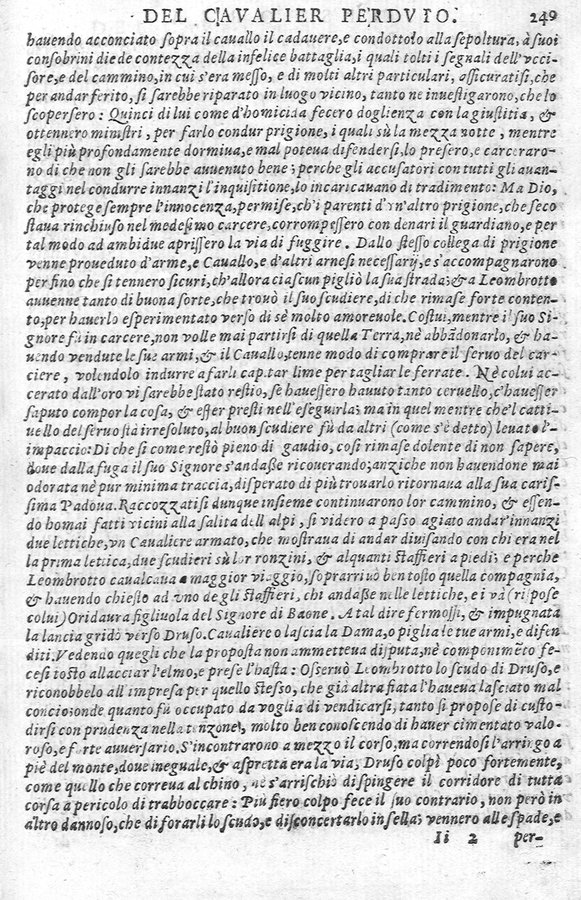 DEL CAVALIER PERDVTO. 249
hauendo acconciato sopra il cauallo il cadauere, e condottolo alla sepoltura, à suoi
consobrini diede contezza della infelice battaglia, i quali tolti i segnali dell'vcci-
sore, e del cammino, in cui s'era messo, e di molti altri particulari, assicuratisi, che
per andar ferito, si sarebbe riparato in luogo vicino, tanto ne inuestigarono, che lo
scopersero: Quinci di lui come d'homicida fecero doglienza con la giustitia, &
ottennero ministri, per farlo condur prigione, i quali sù la mezza notte, mentre
egli più profondamente dormiua, e mal poteua difendersi, lo presero, e carceraro-
no di che non gli sarebbe auuenuto bene; perche gli accusatori con tutti gli auan-
taggi nel condurre innanzi l'inquisitione, lo incaricauano di tradimento: Ma Dio,
che protege sempre l'innocenza, permise, ch'i parenti d'vn'altro prigione, che seco
staua rinchiuso nel medesimo carcere, corrompessero con denari il guardiano, e per
tal modo ad ambidue aprissero la via di fuggire. Dallo stesso collega di prigione
venne proueduto d'arme, e Cauallo, e d'altri arnesi necessarij, e s'accompagnarono
per fino che si tennero sicuri, ch'allora ciascun pigliò la sua strada; & a Leombrotto
auuenne tanto di buona sorte, che trouò il suo scudiere, di che rimase forte conten-
to, per hauerlo esperimentato verso di sè molto amoreuole. Costui, mentre il suo Si-
gnore fù in carcere, non volle mai partirsi di quella Terra, nè abbãdonarlo, & ha-
uendo vendute le sue armi, & il Cauallo, tenne modo di comprare il seruo del car-
ciere, volendolo indurre a farli captar lime per tagliar le ferrate. Nè colui ac-
cerato dall'oro vi sarebbe stato restio, se hauessero hauuto tanto ceruello, c'hauesser
saputo compor la cosa, & esser presti nell'eseguirla; ma in quel mentre che'l catti-
uello del seruo stà irresoluto, al buon scudiere fù da altri (come s'è detto) leuato l'-
impaccio: Di che si come restò pieno di gaudio, così rimase dolente di non sapere,
doue dalla fuga il suo Signore s'andasse ricouerando; anziche non hauendone mai
odorata nè pur minima traccia, disperato di più trouarlo ritornaua alla sua caris-
sima Padoua. Raccozzatisi dunque insieme continuarono lor cammino, & essen-
do homai fatti vicini alla salita dell'alpi, si videro a passo agiato andar'innanzi
due lettiche, vn Caualiere armato, che mostraua di andar diuisando con chi era nel
la prima lettica, due scudieri sù lor ronzini, & alquanti staffieri a piedi; e perche
Leombrotto caualcaua a maggior viaggio, soprarriuò ben tosto quella compagnia,
& hauendo chiesto ad vno de gli staffieri, chi andasse nelle lettiche, e i và (rispose
colui) Oridaura figliuola del Signore di Baone. A tal dire fermossi, & impugnata
la lancia gridò verso Druso. Caualiere o lascia la Dama, o piglia le tue armi, e difen
diti. Vedendo quegli che la proposta non ammetteua disputa, nè componimẽto fe-
cesi tosto allacciar l'elmo, e prese l'hasta: Osseruò Leombrotto lo scudo di Druso, e
riconobbelo all'impresa per quello stesso, che già altra fiata l'haueua lasciato mal
concio; onde quanto fù occupato da voglia di vendicarsi, tanto si propose di custo-
dirsi con prudenza nella tenzone, molto ben conoscendo di hauer cimentato valo-
roso, e forte auuersario. S'incontrarono a mezzo il corso, ma correndosi l'arringo a
piè del monte, doue ineguale, & aspretta era la via, Druso colpì poco fortemente,
come quello che correua al chino, nè s'arrischiò di spingere il corridore di tutta
corsa a pericolo di traboccare: Più fiero colpo fece il suo contrario, non però in
altro dannoso, che di forarli lo scudo, e disconcertarlo in sella; vennero alle spade, e
Ii 2 per-